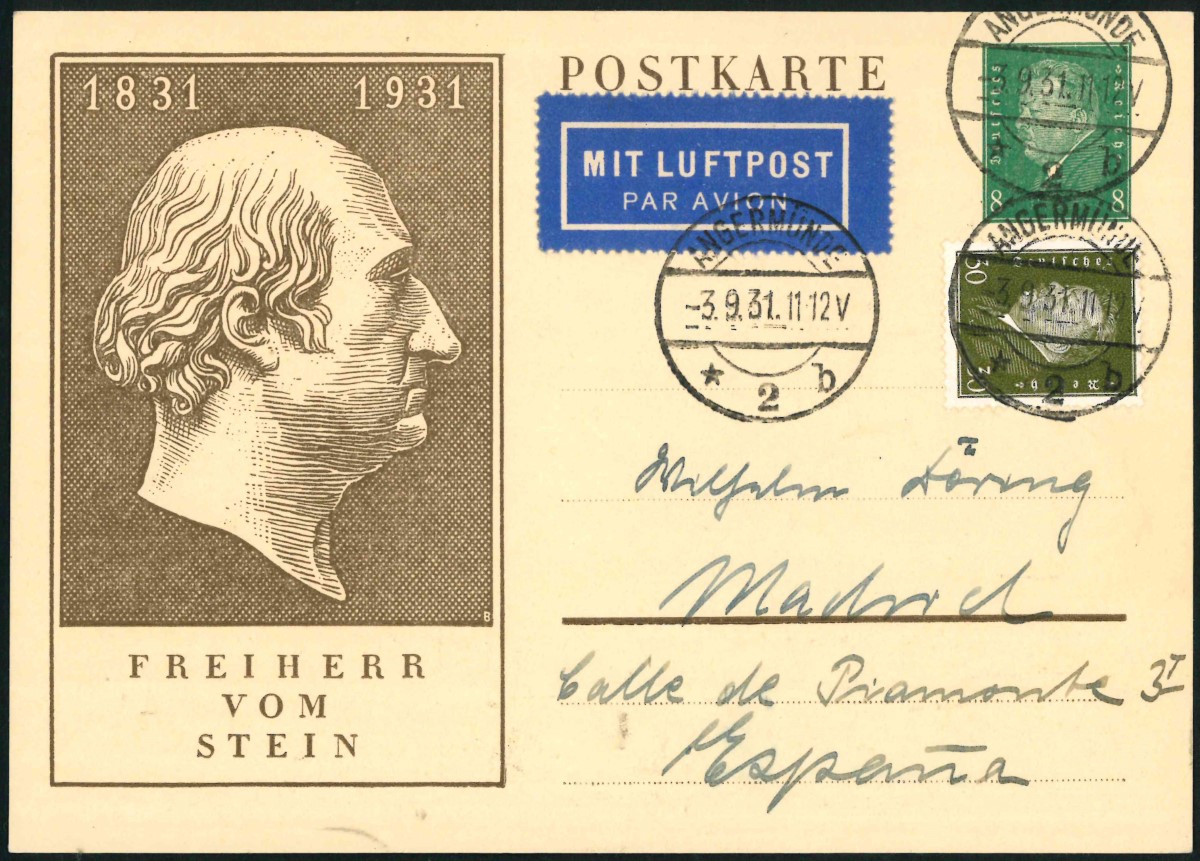 1831 1931
FREIHERR
VOM
STEIN
B
POSTKARTE
MIT LUFTPOST
PAR AVION
Deutsches Reich
8 8
ANGERMÜNDE
-3.9.31.11-12V
* 2 b
Deutsches Reich
20
ANGERMÜNDE
-3.9.31.11-12V
* 2 b
ANGERMÜNDE
-3.9.31.11-12V
* 2 b
Wilhelm Döring
Madrid
Calle de Piamonte 3 I
España